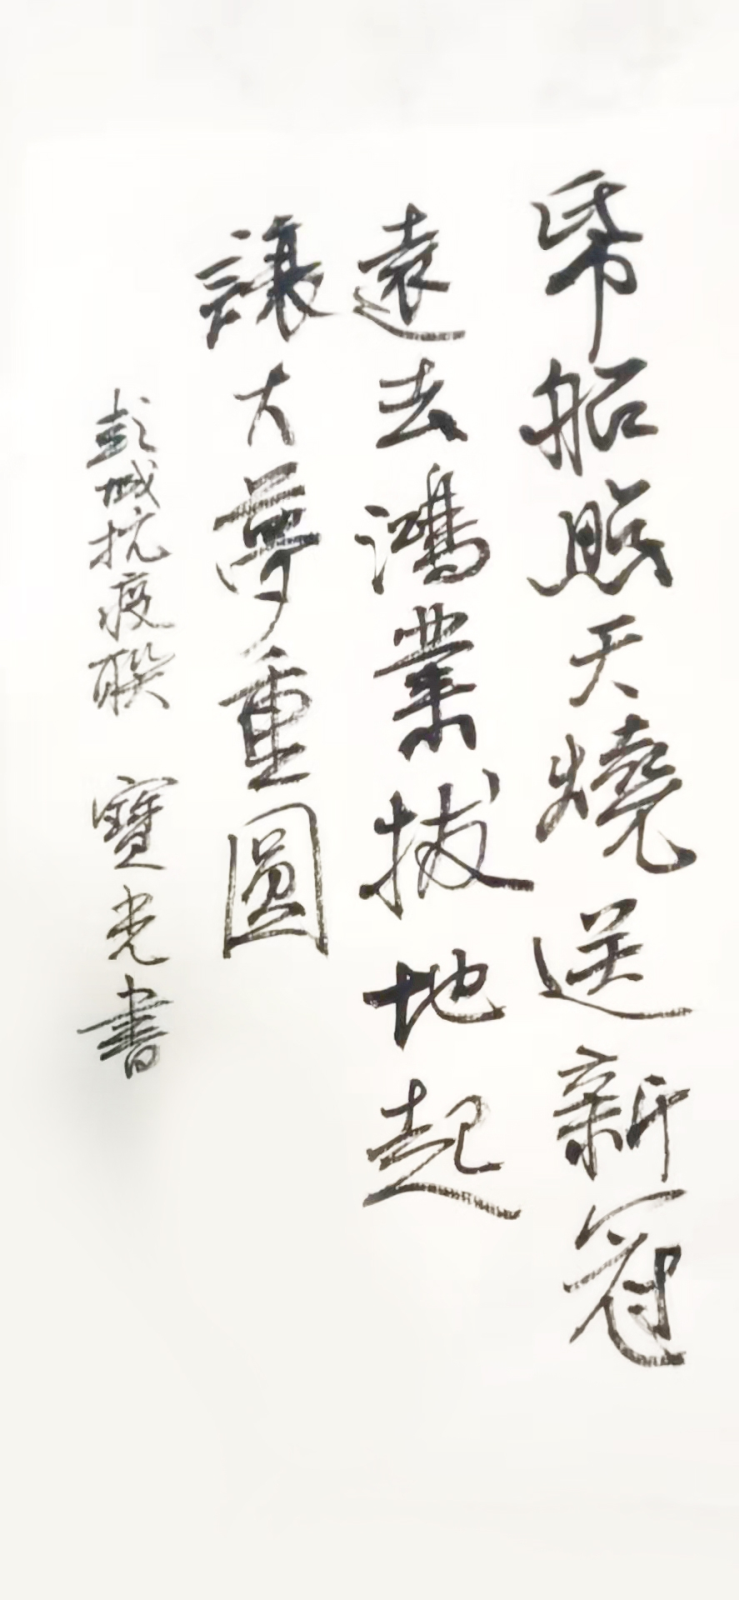 帋船照天燒送新冠
遠去鴻業拔地起
讓大夢重圓
彭城抗疫聯 寶光書